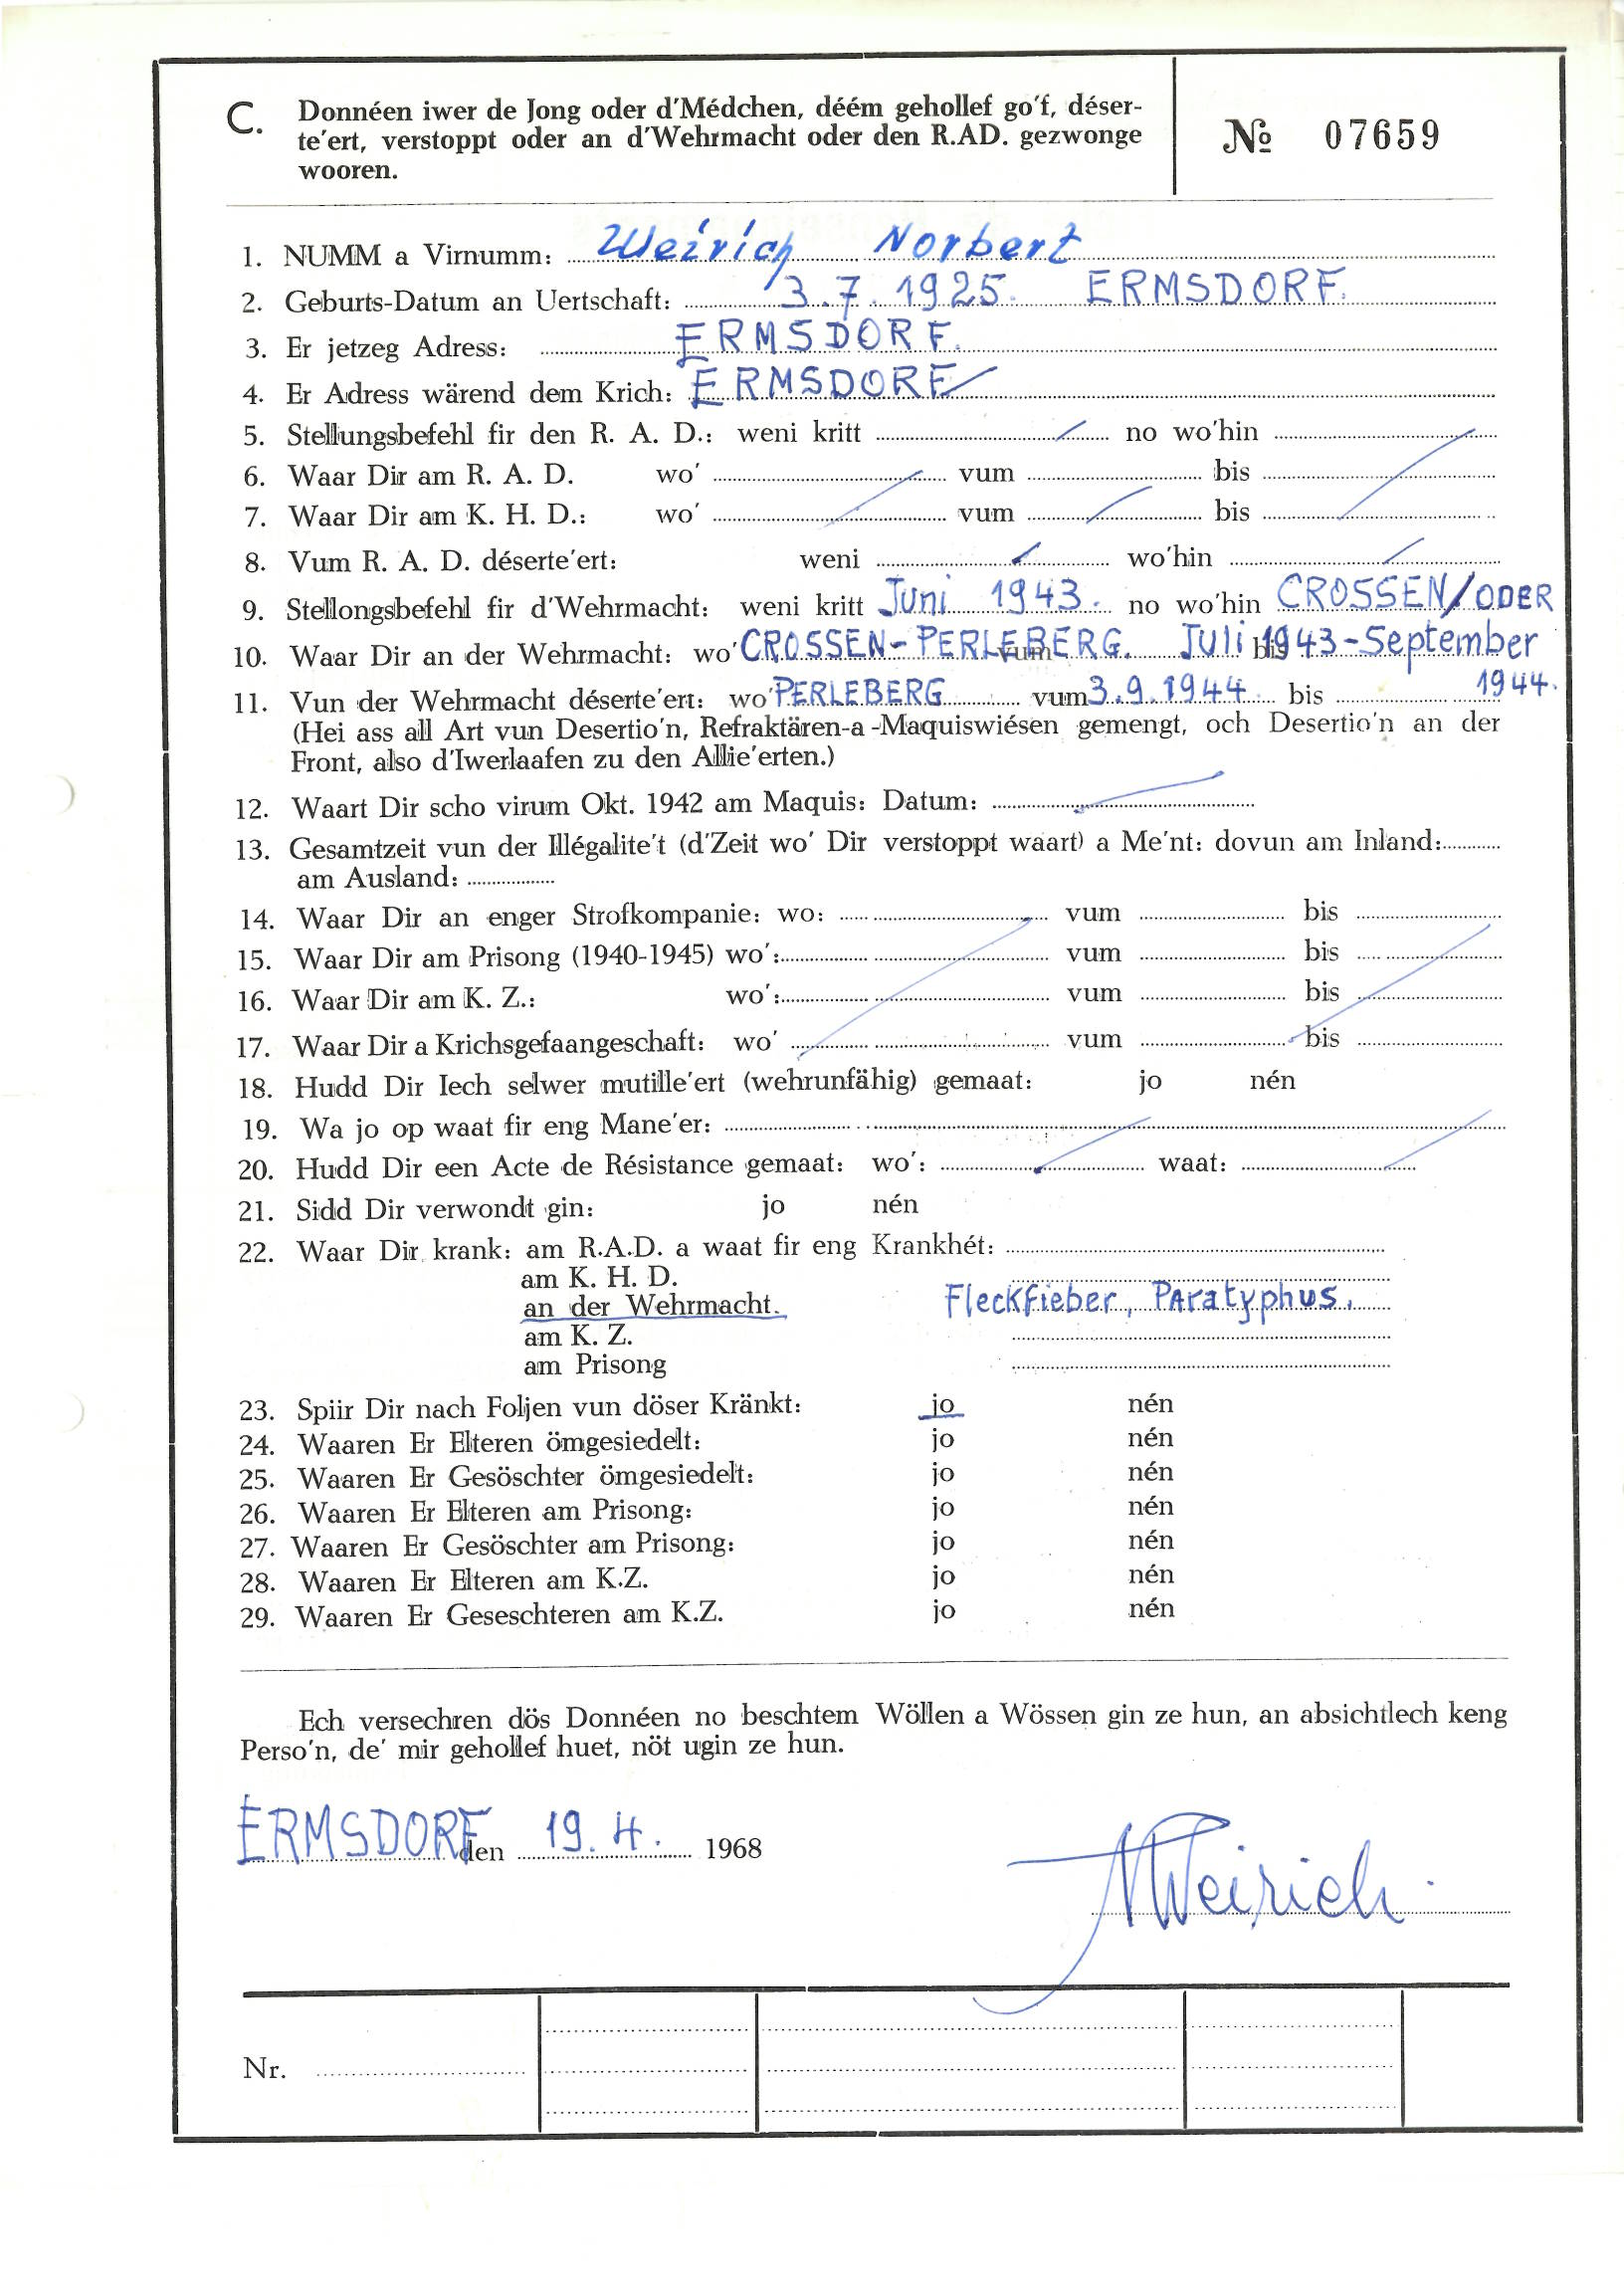 C. Donnéen iwer de Jong oder d'Médchen, déém gehollef go'f, déser-
te'ert, verstoppt oder an d'Wehrmacht oder den R.AD. gezwonge
wooren.
№ 07659
1. NUMM a Virnumm: Weirich Norbert
2. Geburts-Datum an Uertschaft: 3.7.1925. ERMSDORF.
3. Er jetzeg Adress: ERMSDORF.
4. Er Adress wärend dem Krich: ERMSDORF
5. Stellungsbefehl fir den R. A. D.: weni kritt no wo'hin
6. Waar Dir am R. A. D. wo' vum bis
7. Waar Dir am K. H. D.: wo' vum bis
8. Vum R. A. D. déserte'ert: weni wo'hin
9. Stellongsbefehl fir d'Wehrmacht: weni kritt Juni 1943. no wo'hin CROSSEN/ODER
10. Waar Dir an der Wehrmacht: wo' CROSSEN-PERLEBERG. vum Juli bis 1943-September
1944.
11. Vun der Wehrmacht déserte'ert: wo' PERLEBERG vum 3.9.1944 bis
(Hei ass all Art vun Desertio'n, Refraktären-a-Maquiswiésen gemengt, och Desertio'n an der
Front, also d'Iwerlaafen zu den Allie'erten.)
12. Waart Dir scho virum Okt. 1942 am Maquis: Datum:
13. Gesamtzeit vun der Illégalite't (d'Zeit wo' Dir verstoppt waart) a Me'nt: dovun am Inland:
am Ausland:
14. Waar Dir an enger Strofkompanie: wo: vum bis
15. Waar Dir am Prisong (1940-1945) wo': vum bis
16. Waar Dir am K. Z.: wo': vum bis
17. Waar Dir a Krichsgefaangeschaft: wo' vum bis
18. Hudd Dir Iech selwer mutille'ert (wehrunfähig) gemaat: jo nén
19. Wa jo op waat fir eng Mane'er:
20. Hudd Dir een Acte de Résistance gemaat: wo': waat:
21. Sidd Dir verwondt gin: jo nén
22. Waar Dir krank: am R.A.D. a waat fir eng Krankhét:
am K. H. D.
an der Wehrmacht. Fleckfieber, Paratyphus.
am K. Z.
am Prisong
23. Spiir Dir nach Foljen vun döser Kränkt: jo nén
24. Waaren Er Elteren ömgesiedelt: jo nén
25. Waaren Er Gesöschter ömgesiedelt: jo nén
26. Waaren Er Elteren am Prisong: jo nén
27. Waaren Er Gesöschter am Prisong: jo nén
28. Waaren Er Elteren am K.Z. jo nén
29. Waaren Er Geseschteren am K.Z. jo nén
Ech versechren dös Donnéen no beschtem Wöllen a Wössen gin ze hun, an absichtlech keng
Perso'n, de' mir gehollef huet, nöt ugin ze hun.
ERMSDORF den 19.4. 1968
NWeirich.
Nr.